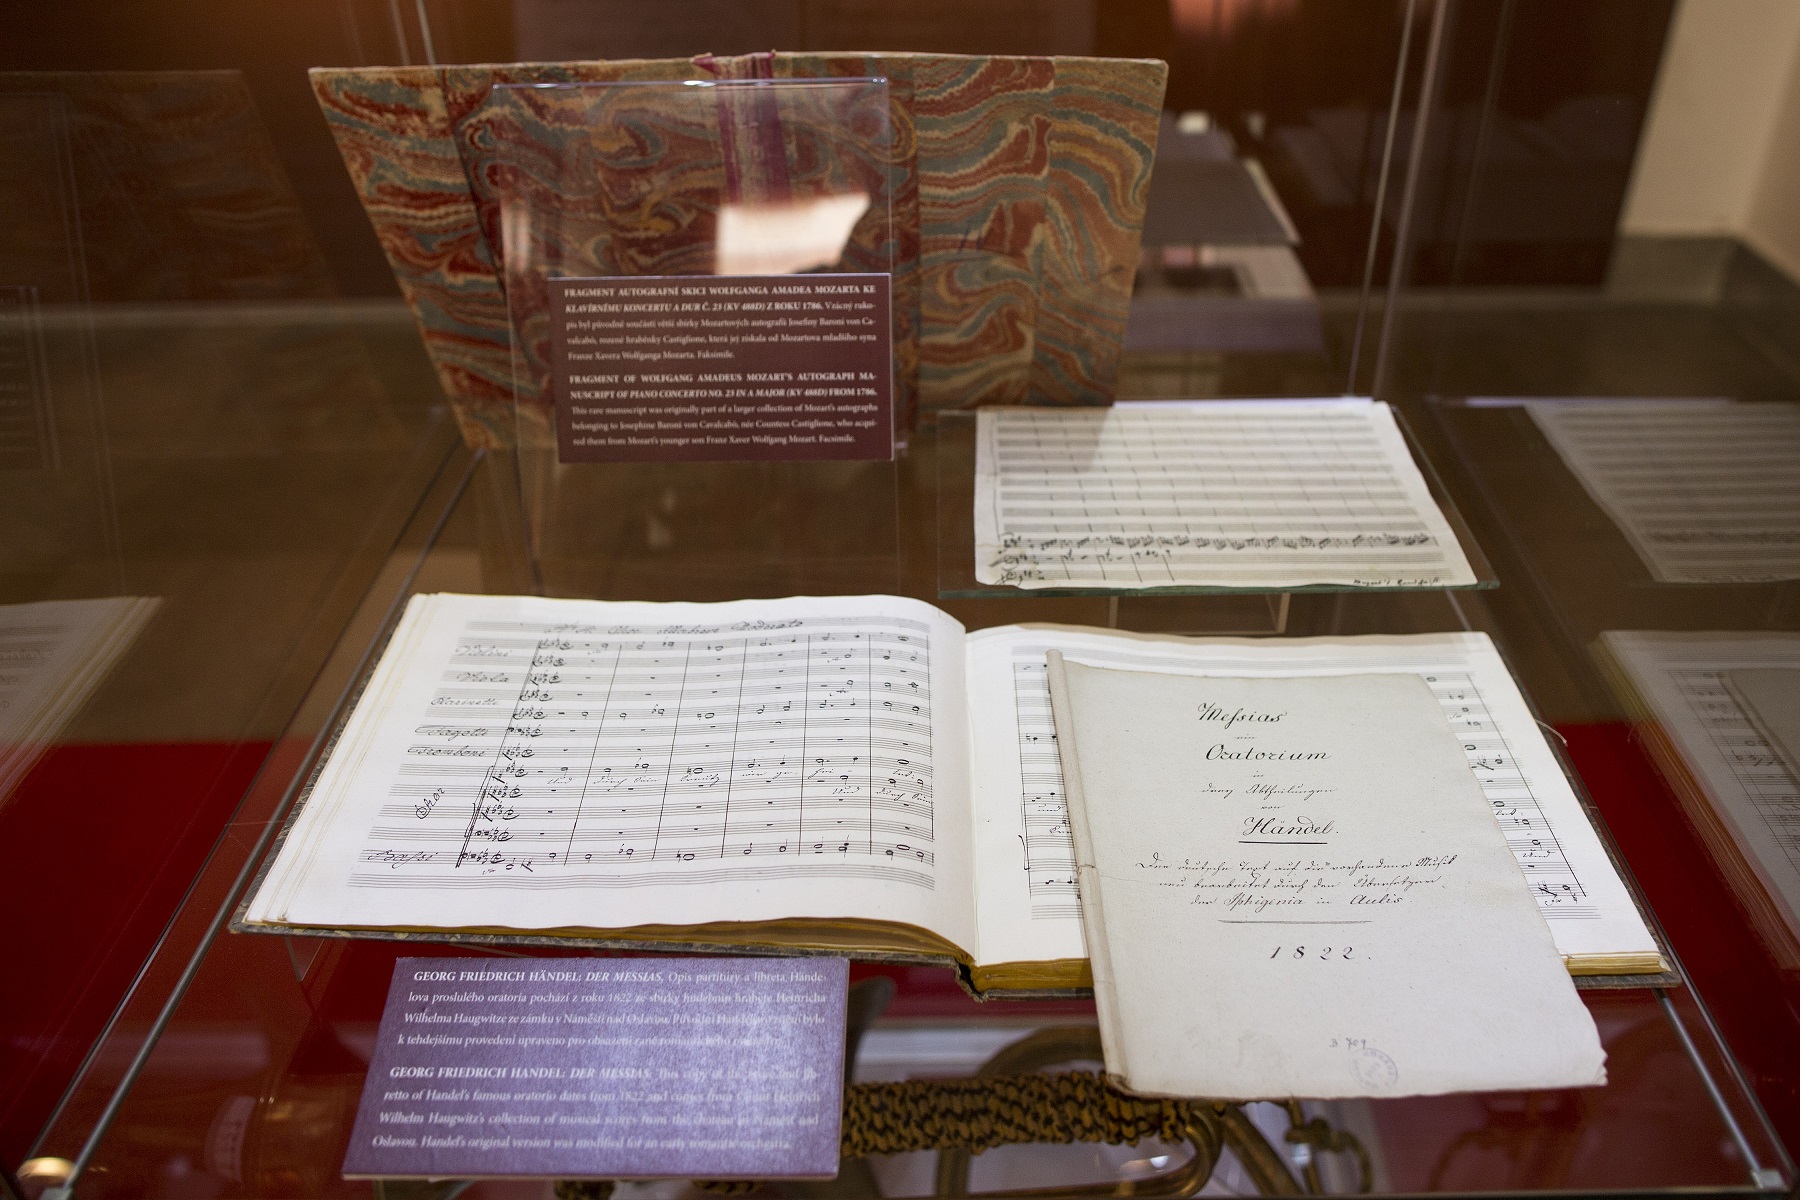 FRAGMENT AUTOGRAFNÍ SKICI WOLFGANGA AMADEA MOZARTA KE
KLAVÍRNÍMU KONCERTU A DUR Č. 23 (KV 488D) Z ROKU 1786. Vzácný ruko-
pis byl původně součástí větší sbírky Mozartových autografů Josefiny Baroni von Ca-
valcabò, rozené hraběnky Castiglione, která jej získala od Mozartova mladšího syna
Franze Xavera Wolfganga Mozarta. Faksimile.
FRAGMENT OF WOLFGANG AMADEUS MOZART'S AUTOGRAPH MA-
NUSCRIPT OF PIANO CONCERTO NO. 23 IN A MAJOR (KV 488D) FROM 1786.
This rare manuscript was originally part of a larger collection of Mozart's autographs
belonging to Josephine Baroni von Cavalcabò, née Countess Castiglione, who acqui-
red them from Mozart's younger son Franz Xaver Wolfgang Mozart. Facsimile.
Chor Moderato
Violini
Viola
Clarinetti
Fagotti
Tromboni
Chor
Und durch Sein
Und durch Sein
Bassi
Messias
ein
Oratorium
in
drey Abtheilungen
von
Händel.
Der deutsche Text auf die vorhandene Musik
neu bearbeitet durch den Übersetzer
der Iphigenia in Aulis.
1822.
GEORG FRIEDRICH HÄNDEL: DER MESSIAS. Opis partitury a libreta Hände-
lova proslulého oratoria pochází z roku 1822 ze sbírky hudebnin hraběte Heinricha
Wilhelma Haugwitze ze zámku v Náměšti nad Oslavou. Původní Händelovo znění bylo
k tehdejšímu provedení upraveno pro obsazení raně romantického orchestru.
GEORG FRIEDRICH HANDEL: DER MESSIAS. This copy of the score and lib-
retto of Handel's famous oratorio dates from 1822 and comes from Count Heinrich
Wilhelm Haugwitz's collection of musical scores from the chateau in Náměšť nad
Oslavou. Handel's original version was modified for an early romantic orchestra.